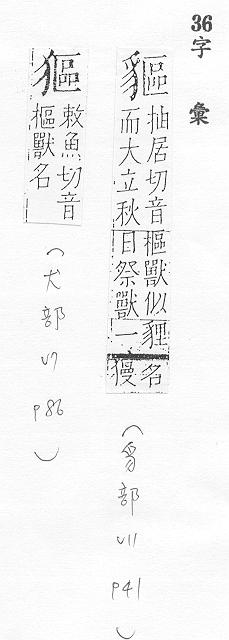 36字彙
貙
抽居切音樞獸似貍
而大立秋日祭獸一名獌
(豸部 V11 P41)
敕魚切音
樞獸名
(犬部 V7 P86)